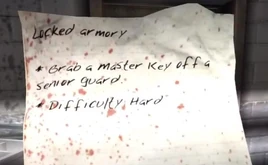 Locked armory
* Grab a master key off a
senior guard.
* Difficulty Hard